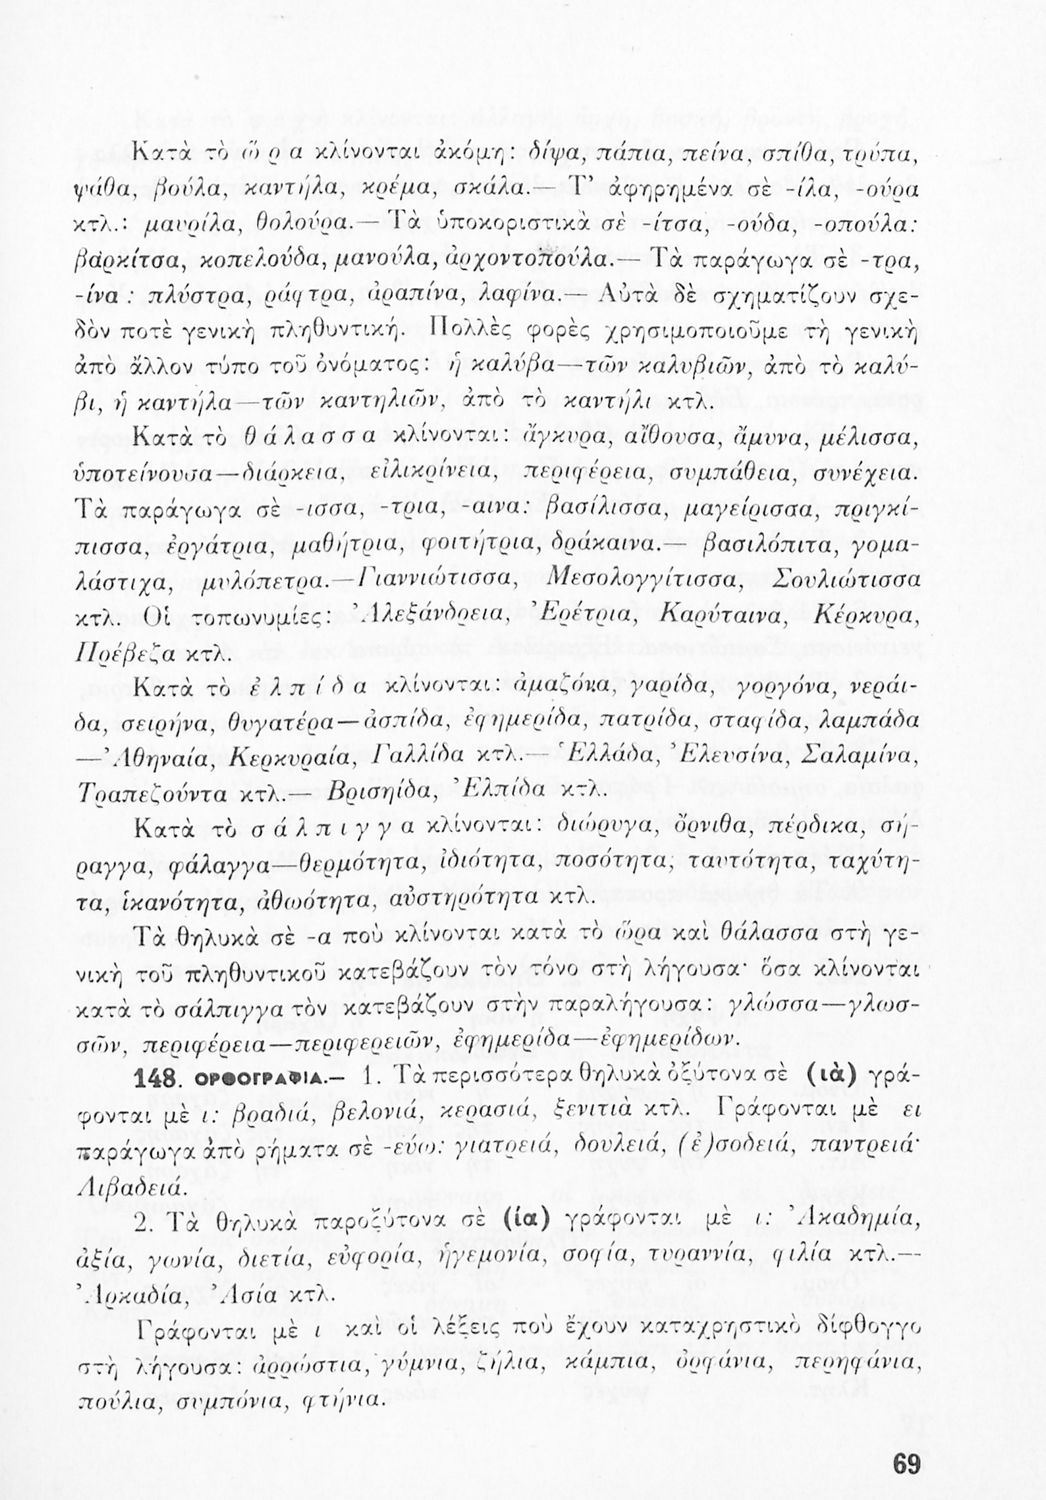 Κατὰ τὸ ὥρα κλίνονται ἀκόμη: δίψα, πάπια, πείνα, σπίθα, τρύπα,
ψάθα, βούλα, καντήλα, κρέμα, σκάλα.— Τ’ ἀφηρημένα σὲ -ίλα, -ούρα
κτλ.: μαυρίλα, θολούρα.— Τὰ ὑποκοριστικὰ σὲ -ίτσα, -ούδα, -οπούλα:
βαρκίτσα, κοπελούδα, μανούλα, ἀρχοντοπούλα.— Τὰ παράγωγα σὲ -τρα,
-ίνα : πλύστρα, ράφτρα, ἀραπίνα, λαφίνα.— Αὐτὰ δὲ σχηματίζουν σχε-
δὸν ποτὲ γενικὴ πληθυντική. Πολλὲς φορὲς χρησιμοποιοῦμε τὴ γενικὴ
ἀπὸ ἄλλον τύπο τοῦ ὀνόματος: ἡ καλύβα—τῶν καλυβιῶν, ἀπὸ τὸ καλύ-
βι, ἡ καντήλα—τῶν καντηλιῶν, ἀπὸ τὸ καντήλι κτλ.
Κατὰ τὸ θάλασσα κλίνονται: ἄγκυρα, αἴθουσα, ἄμυνα, μέλισσα,
ὑποτείνουσα—διάρκεια, εἰλικρίνεια, περιφέρεια, συμπάθεια, συνέχεια.
Τὰ παράγωγα σὲ -ισσα, -τρια, -αινα: βασίλισσα, μαγείρισσα, πριγκί-
πισσα, ἐργάτρια, μαθήτρια, φοιτήτρια, δράκαινα.— βασιλόπιτα, γομα-
λάστιχα, μυλόπετρα.—Γιαννιώτισσα, Μεσολογγίτισσα, Σουλιώτισσα
κτλ. Οἱ τοπωνυμίες: Ἀλεξάνδρεια, Ἐρέτρια, Καρύταινα, Κέρκυρα,
Πρέβεζα κτλ.
Κατὰ τὸ ἐλπίδα κλίνονται: ἀμαζόνα, γαρίδα, γοργόνα, νεράι-
δα, σειρήνα, θυγατέρα—ἀσπίδα, ἐφημερίδα, πατρίδα, σταφίδα, λαμπάδα
—Ἀθηναία, Κερκυραία, Γαλλίδα κτλ.— Ἑλλάδα, Ἐλευσίνα, Σαλαμίνα,
Τραπεζούντα κτλ.— Βρισηίδα, Ἐλπίδα κτλ.
Κατὰ τὸ σάλπιγγα κλίνονται: διώρυγα, ὄρνιθα, πέρδικα, σή-
ραγγα, φάλαγγα—θερμότητα, ἰδιότητα, ποσότητα, ταυτότητα, ταχύτη-
τα, ἱκανότητα, ἀθωότητα, αὐστηρότητα κτλ.
Τὰ θηλυκὰ σὲ -α ποὺ κλίνονται κατὰ τὸ ὥρα καὶ θάλασσα στὴ γε-
νικὴ τοῦ πληθυντικοῦ κατεβάζουν τὸν τόνο στὴ λήγουσα· ὅσα κλίνονται
κατὰ τὸ σάλπιγγα τὸν κατεβάζουν στὴν παραλήγουσα: γλώσσα—γλωσ-
σῶν, περιφέρεια—περιφερειῶν, ἐφημερίδα—ἐφημερίδων.
148. ΟΡΘΟΓΡΑΦΙΑ.— 1. Τὰ περισσότερα θηλυκὰ ὀξύτονα σὲ (ιὰ) γρά-
φονται μὲ ι: βραδιά, βελονιά, κερασιά, ξενιτιὰ κτλ. Γράφονται μὲ ει
παράγωγα ἀπὸ ρήματα σὲ -εύω: γιατρειά, δουλειά, (ἐ)σοδειά, παντρειά·
Λιβαδειά.
2. Τὰ θηλυκὰ παροξύτονα σὲ (ία) γράφονται μὲ ι: Ἀκαδημία,
ἀξία, γωνία, διετία, εὐφορία, ἡγεμονία, σοφία, τυραννία, φιλία κτλ.—
Ἀρκαδία, Ἀσία κτλ.
Γράφονται μὲ ι καὶ οἱ λέξεις ποὺ ἔχουν καταχρηστικὸ δίφθογγο
στὴ λήγουσα: ἀρρώστια, γύμνια, ζήλια, κάμπια, ὀρφάνια, περηφάνια,
πούλια, συμπόνια, φτήνια.
69